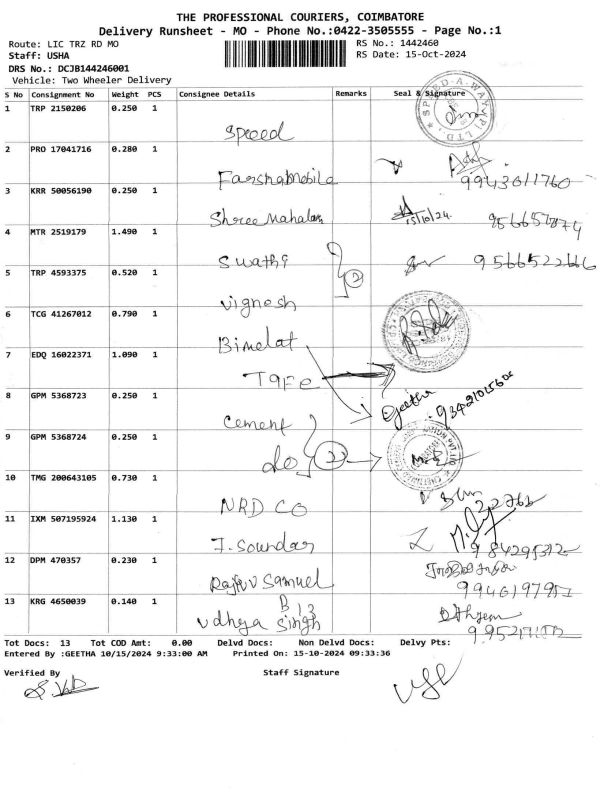 THE PROFESSIONAL COURIERS, COIMBATORE
Delivery Runsheet - MO - Phone No.:0422-3505555 - Page No.:1
Route: LIC TRZ RD MO RS No.: 1442460
Staff: USHA RS Date: 15-Oct-2024
DRS No.: DCJB144246001
Vehicle: Two Wheeler Delivery
S No Consignment No Weight PCS Consignee Details Remarks Seal & Signature
1 TRP 2150206 0.250 1
Speed
2 PRO 17041716 0.280 1
Farshamobile 9943611760
3 KRR 50056190 0.250 1
Shree Mahalaxmi 15/10/24
4 MTR 2519179 1.490 1
Swathi 2 9566522666
5 TRP 4593375 0.520 1
Vignesh
6 TCG 41267012 0.790 1
Bimelat
7 EDQ 16022371 1.090 1
TAFE
8 GPM 5368723 0.250 1 Geetha
Cement
9 GPM 5368724 0.250 1
do 2
10 TMG 200643105 0.730 1
NRD CO
11 IXM 507195924 1.130 1
J. Soundar
12 DPM 470357 0.230 1
Rajiv Samuel
13 KRG 4650039 0.140 1 B 13
Vdhya Singh
Tot Docs: 13 Tot COD Amt: 0.00 Delvd Docs: Non Delvd Docs: Delvy Pts:
Entered By :GEETHA 10/15/2024 9:33:00 AM Printed On: 15-10-2024 09:33:36
Verified By Staff Signature